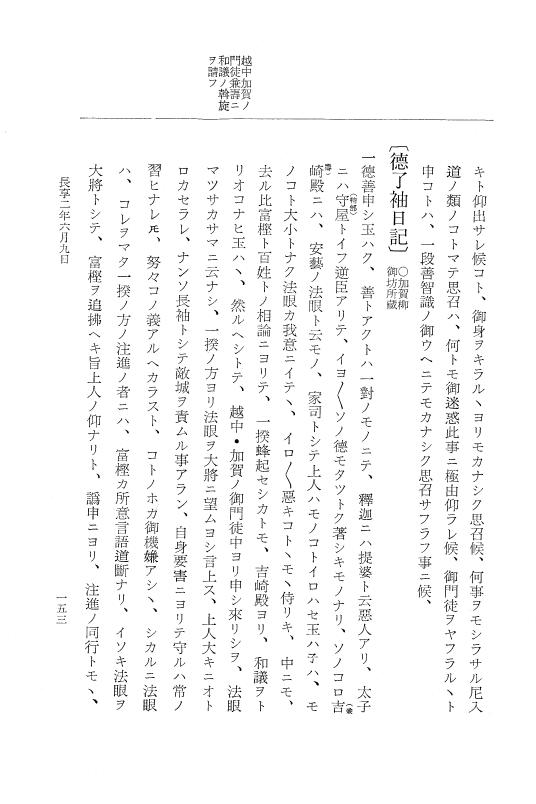 越中加賀ノ
門徒兼壽ニ
和議ノ斡旋
ヲ請フ
キト仰出サレ候コト、御身ヲキラルヽヨリモカナシク思召候、何事ヲモシラサル尼入
道ノ類ノコトマテ思召ハ、何トモ御迷惑此事ニ極由仰ラレ候、御門徒ヲヤフラルヽト
申コトハ、一段善智識ノ御ウヘニテモカナシク思召サフラフ事ニ候、
〔德了袖日記〕
○加賀柳
御坊所藏
一德善申シ玉ハク、善トアクトハ一對ノモノニテ、釋迦ニハ提婆ト云惡人アリ、太子
ニハ守屋トイフ逆臣アリテ、イヨ〳〵ソノ德モタツトク著シキモノナリ、ソノコロ吉
(物部)
(蓮
崎殿ニハ、安藝ノ法眼ト云モノ、家司トシテ上人ハモノコトイロハセ玉ハ子ハ、モ
崇)
ノコト大小トナク法眼カ我意ニイテヽ、イロ〳〵惡キコトヽモヽ侍リキ、中ニモ、
去ル比富樫ト百姓トノ相論ニヨリテ、一揆蜂起セシカトモ、吉崎殿ヨリ、和議ヲト
リオコナヒ玉ハヽ、然ルヘシトテ、越中・加賀ノ御門徒中ヨリ申シ來リシヲ、法眼
マツサカサマニ云ナシ、一揆ノ方ヨリ法眼ヲ大將ニ望ムヨシ言上ス、上人大キニオト
ロカセラレ、ナンソ長袖トシテ敵城ヲ責ムル事アラン、自身要害ニヨリテ守ルハ常ノ
習ヒナレ𪜈、努々コノ義アルヘカラスト、コトノホカ御機嫌アシヽ、シカルニ法眼
ハ、コレヲマタ一揆ノ方ノ注進ノ者ニハ、富樫カ所意言語道斷ナリ、イソキ法眼ヲ
大將トシテ、富樫ヲ追拂ヘキ旨上人ノ仰ナリト、譌申ニヨリ、注進ノ同行トモヽ、
長享二年六月九日
一五三